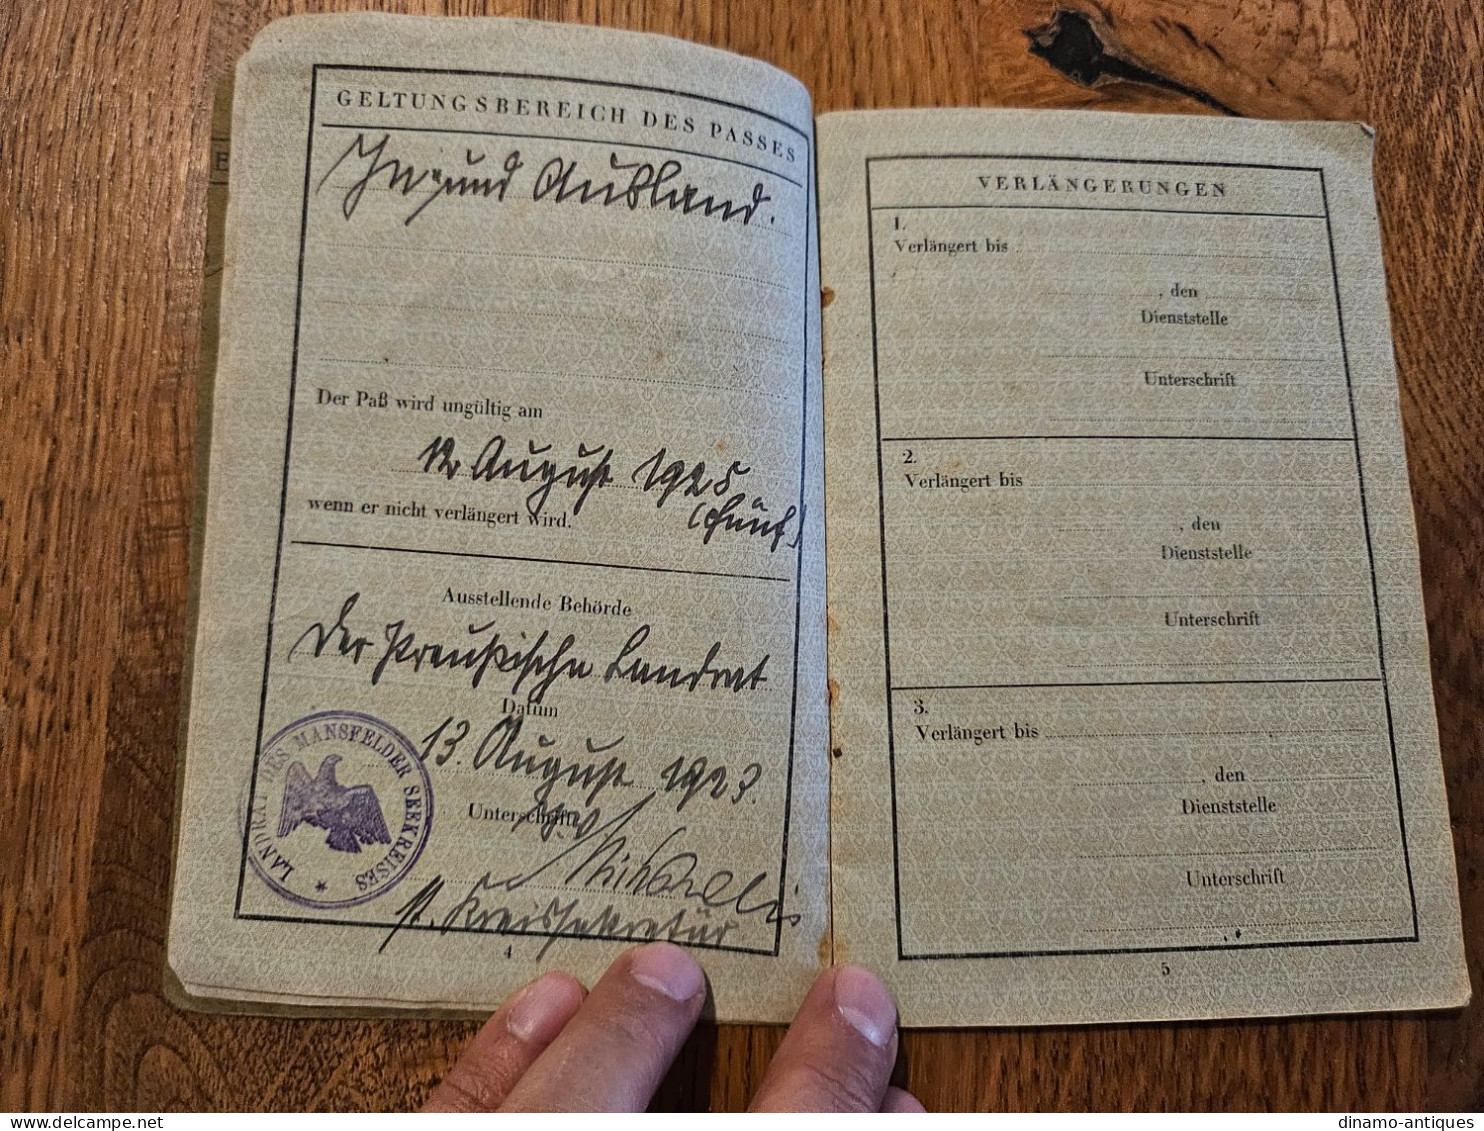 GELTUNGSBEREICH DES PASSES
In- und Ausland.
Der Paß wird ungültig am
12. August 1925
(fünf)
wenn er nicht verlängert wird.
Ausstellende Behörde
Der Preußische Landrat
Datum
13. August 1923.
Unterschrift
st. Kreissekretär
LANDRAT DES MANSFELDER SEEKREISES
4
VERLÄNGERUNGEN
1.
Verlängert bis
, den
Dienststelle
Unterschrift
2.
Verlängert bis
, den
Dienststelle
Unterschrift
3.
Verlängert bis
, den
Dienststelle
Unterschrift
5
dinamo-antiques